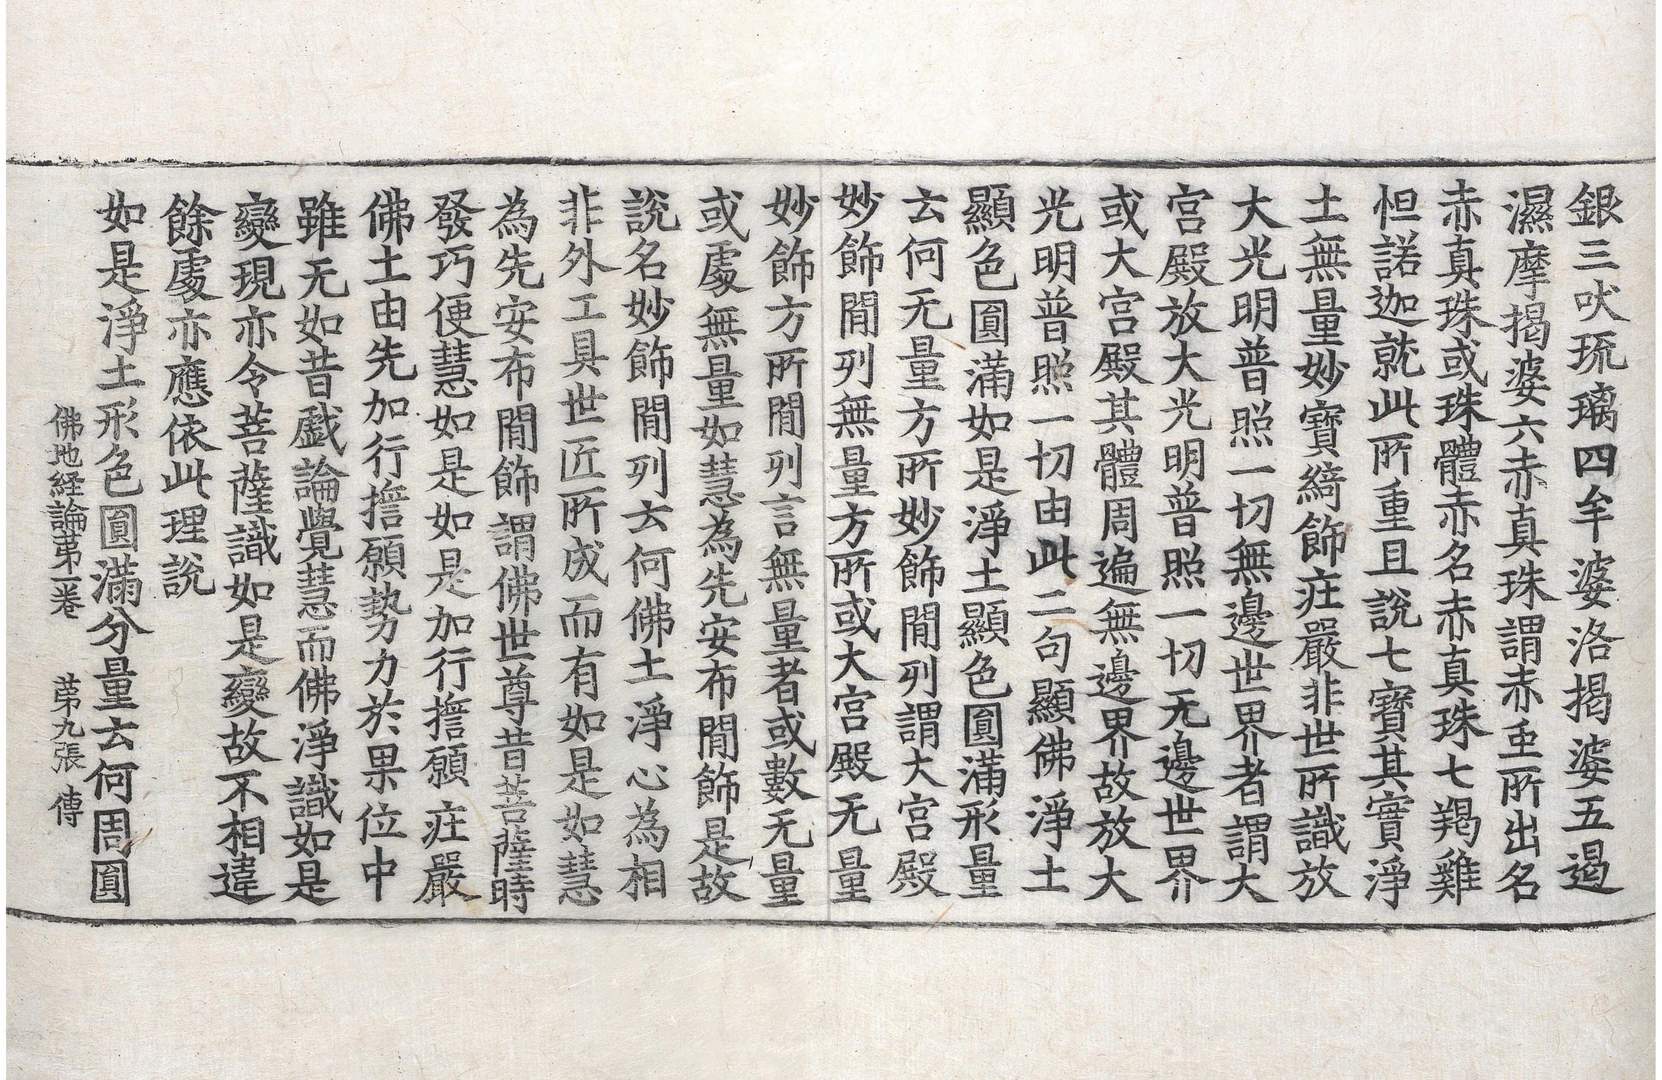 銀三吠琉璃四牟婆洛揭婆五遏
濕摩揭婆六赤真珠謂赤虫所出名
赤真珠或珠體赤名赤真珠七羯雞
怛諾迦就此所重且說七寶其實淨
土無量妙寶綺飾莊嚴非世所識放
大光明普照一切無邊世界者謂大
宮殿放大光明普照一切无邊世界
或大宮殿其體周遍無邊界故放大
光明普照一切由此二句顯佛淨土
顯色圓滿如是淨土顯色圓滿形量
云何无量方所妙飾間列謂大宮殿
妙飾間列無量方所或大宮殿无量
妙飾方所間列言無量者或數无量
或處無量如慧為先安布間飾是故
說名妙飾間列云何佛土淨心為相
非外工具世匠所成而有如是如慧
為先安布間飾謂佛世尊昔菩薩時
發巧便慧如是如是加行擔願莊嚴
佛土由先加行擔願勢力於果位中
雖无如昔戲論覺慧而佛淨識如是
變現亦令菩薩識如是變故不相違
餘處亦應依此理說
如是淨土形色圓滿分量云何周圓
佛地経論第一卷　第九張　傳